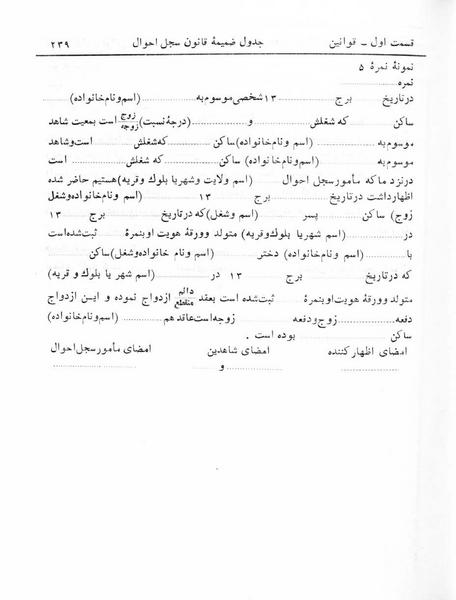 قسمت اول ـ قوانین جدول ضمیمۀ قانون سجل احوال ۲۳۹
نمونۀ نمرۀ ۵
نمره
در تاریخ برج ۱۳ شخصی موسوم به ............ (اسم و نام خانواده)
ساکن ............ که شغلش ............ و ............ (درجۀ نسبت) زوج / زوجه است بمعیت شاهد
موسوم به ............ (اسم و نام خانواده) ساکن ............ که شغلش ............ است و شاهد
موسوم به ............ (اسم و نام خانواده) ساکن ............ که شغلش ............ است
در نزد ما که مأمور سجل احوال ............ (اسم ولایت و شهر یا بلوک و قریه) هستیم حاضر شده
اظهار داشت در تاریخ ............ برج ۱۳ (اسم و نام خانواده و شغل
زوج) ساکن ............ پسر ............ (اسم و شغل) که در تاریخ برج ۱۳
در ............ (اسم شهر یا بلوک و قریه) متولد و ورقۀ هویت او بنمرۀ ثبت شده است
با ............ (اسم و نام خانواده) دختر ............ (اسم و نام خانواده و شغل) ساکن ............
که در تاریخ برج ۱۳ در ............ (اسم شهر یا بلوک و قریه)
متولد و ورقۀ هویت او بنمرۀ ثبت شده است بعقد دائم / منقطع ازدواج نموده و این ازدواج
دفعه ............ زوج و دفعه ............ زوجه است عاقد هم ............ (اسم و نام خانواده)
ساکن ............ بوده است .
امضای اظهار کننده امضای شاهدین امضای مأمور سجل احوال
............ ............ و ............ ............